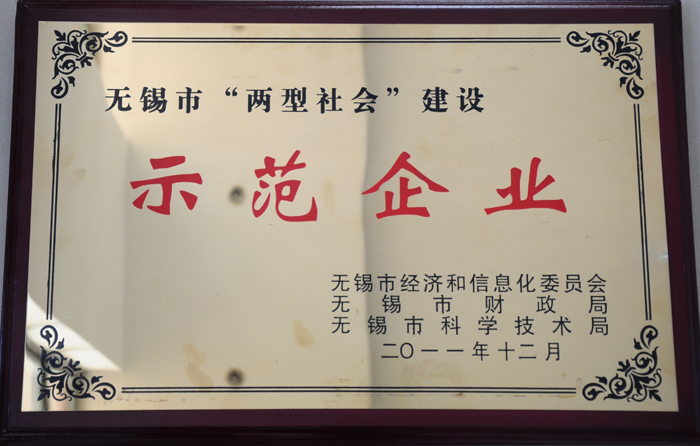 无锡市“两型社会”建设
示范企业
无锡市经济和信息化委员会
无锡市财政局
无锡市科学技术局
二〇一一年十二月